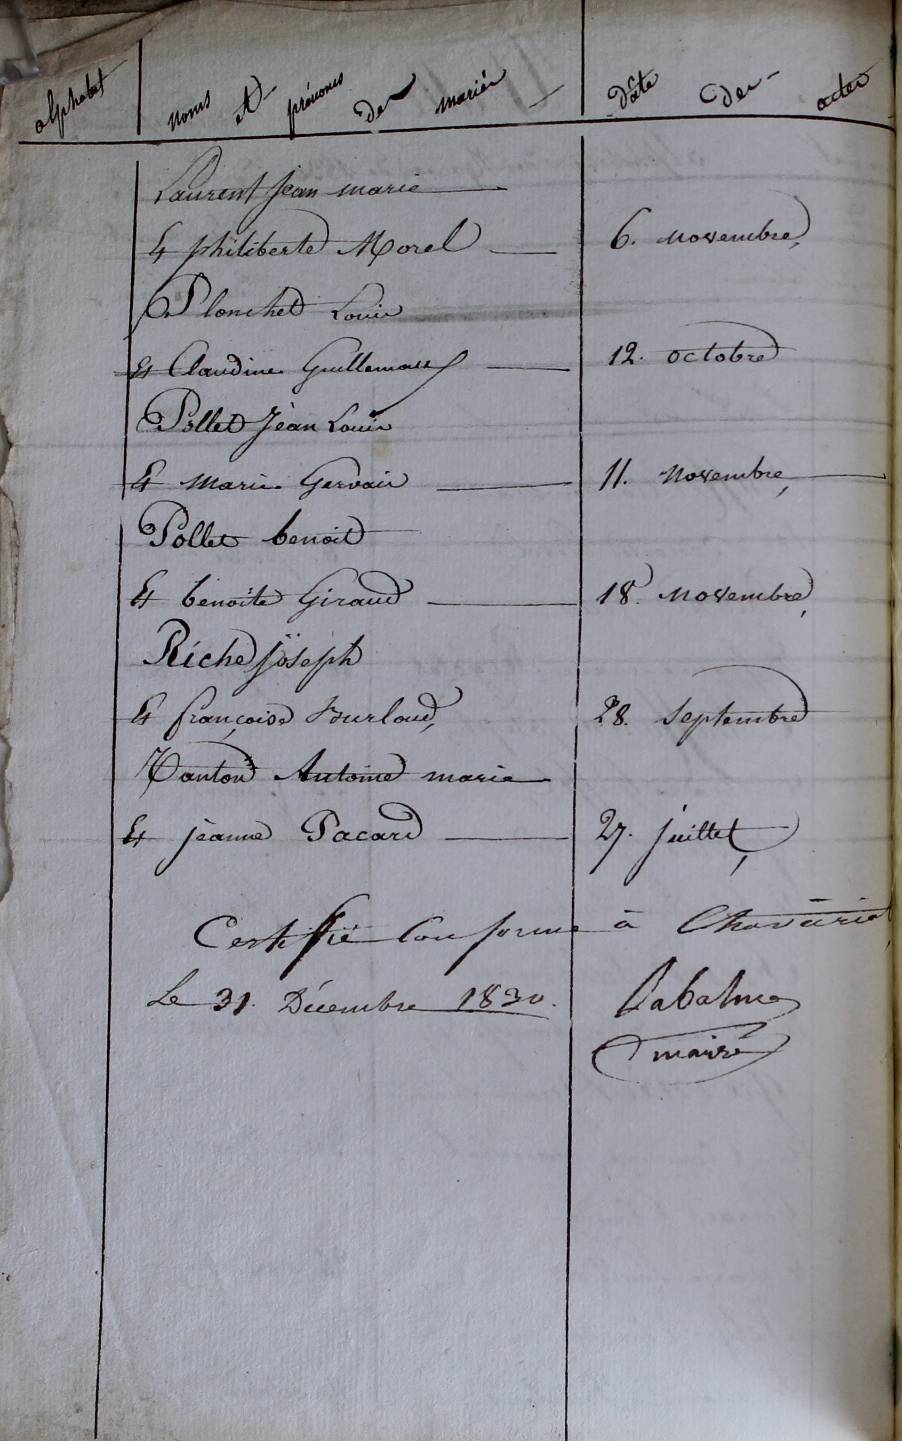 alphabet noms et prénoms des mariés date des actes
Laurent Jean marie
Et philiberte Morel 6. novembre,
Plonchet Louis
Et Claudine 12. octobre
Pollet Jean Louis
Et marie Gervais 11. Novembre,
Pollet benoit
Et benoite Giraud 18. novembre,
Riche Joseph
Et françoise Burlaud, 28. septembre
Tanton Antoine marie
Et jeanne Pacard 27. juillet,
Certifié Conforme à Chaveÿriat
Le 31. Décembre 1830. Labalme
maire